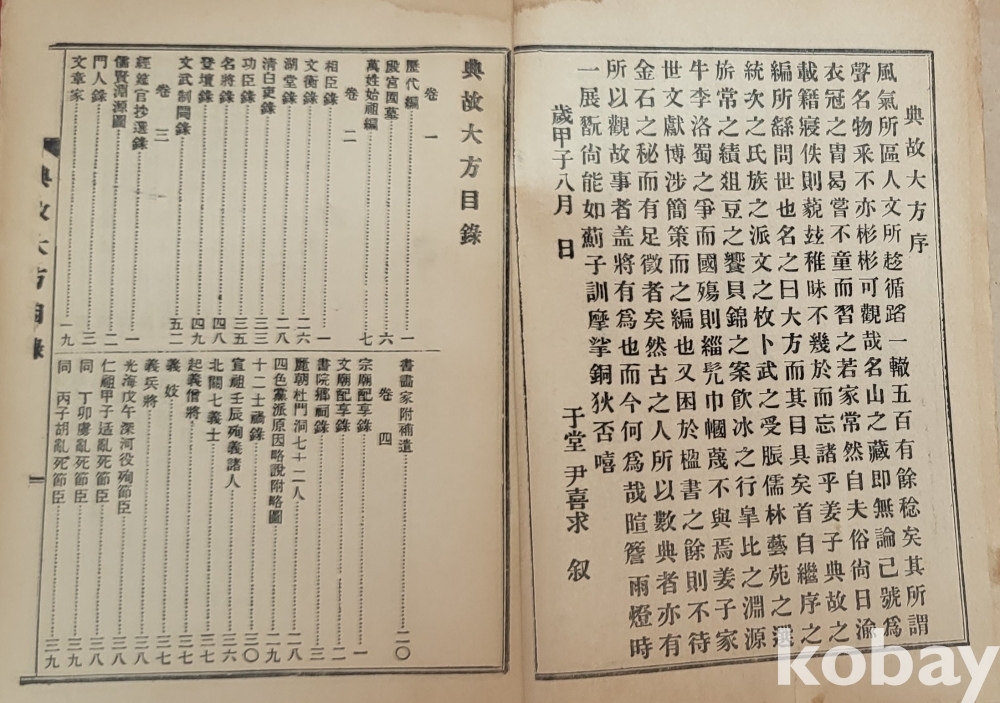 典故大方序
風氣所區人文所趁循路一轍五百有餘稔矣其所謂
聲名物采不亦彬彬可觀哉名山之藏即無論已號爲
衣冠之胄曷嘗不童而習之若家常然自夫俗尙日渝
載籍寢佚則藐玆稚昧不幾於而忘諸乎姜子典故之
編所繇問世也名之曰大方而其目具矣首自繼序之
統次之氏族之派文之枚卜武之受脤儒林藝苑之選
旂常之績俎豆之饗貝錦之案飮冰之行皐比之淵源
牛李洛蜀之爭而國殤則緇髡巾幗蔑不與焉姜子家
世文獻博涉簡策而之編也又困於楹書之餘則不待
金石之秘而有足徵者矣然古之人所以數典者亦有
所以觀故事者盖將有爲也而今何爲哉暄簷雨燈時
一展翫尙能如薊子訓摩挲銅狄否嘻
歲甲子八月 日
于堂 尹喜求 叙
典故大方目錄
卷一
歷代編 一
殿宮園墓 六
萬姓始祖編 七
卷二
相臣錄 一
文衡錄 二六
湖堂錄 二八
清白吏錄 三三
功臣錄 三五
名將錄 四八
登壇錄 四九
文武制閫錄 五二
卷三
經筵官抄選錄 一
儒賢淵源圖 二
門人錄 三
文章家 一九
書畵家附補遺 二〇
卷四
宗廟配享錄 一
文廟配享錄 二
書院鄕祠錄 三
麗朝杜門洞七十二人 二八
四色黨派原因略說附略圖 二九
十二士禍錄 三〇
宣祖壬辰殉義諸人 三六
北關七義士 三七
起義僧將 三七
義妓 三七
義兵將 三八
光海戊午深河役殉節臣 三八
仁祖甲子适亂死節臣 三八
同 丁卯虜亂死節臣 三九
同 丙子胡亂死節臣 三九
典故大方目錄
一
kobay